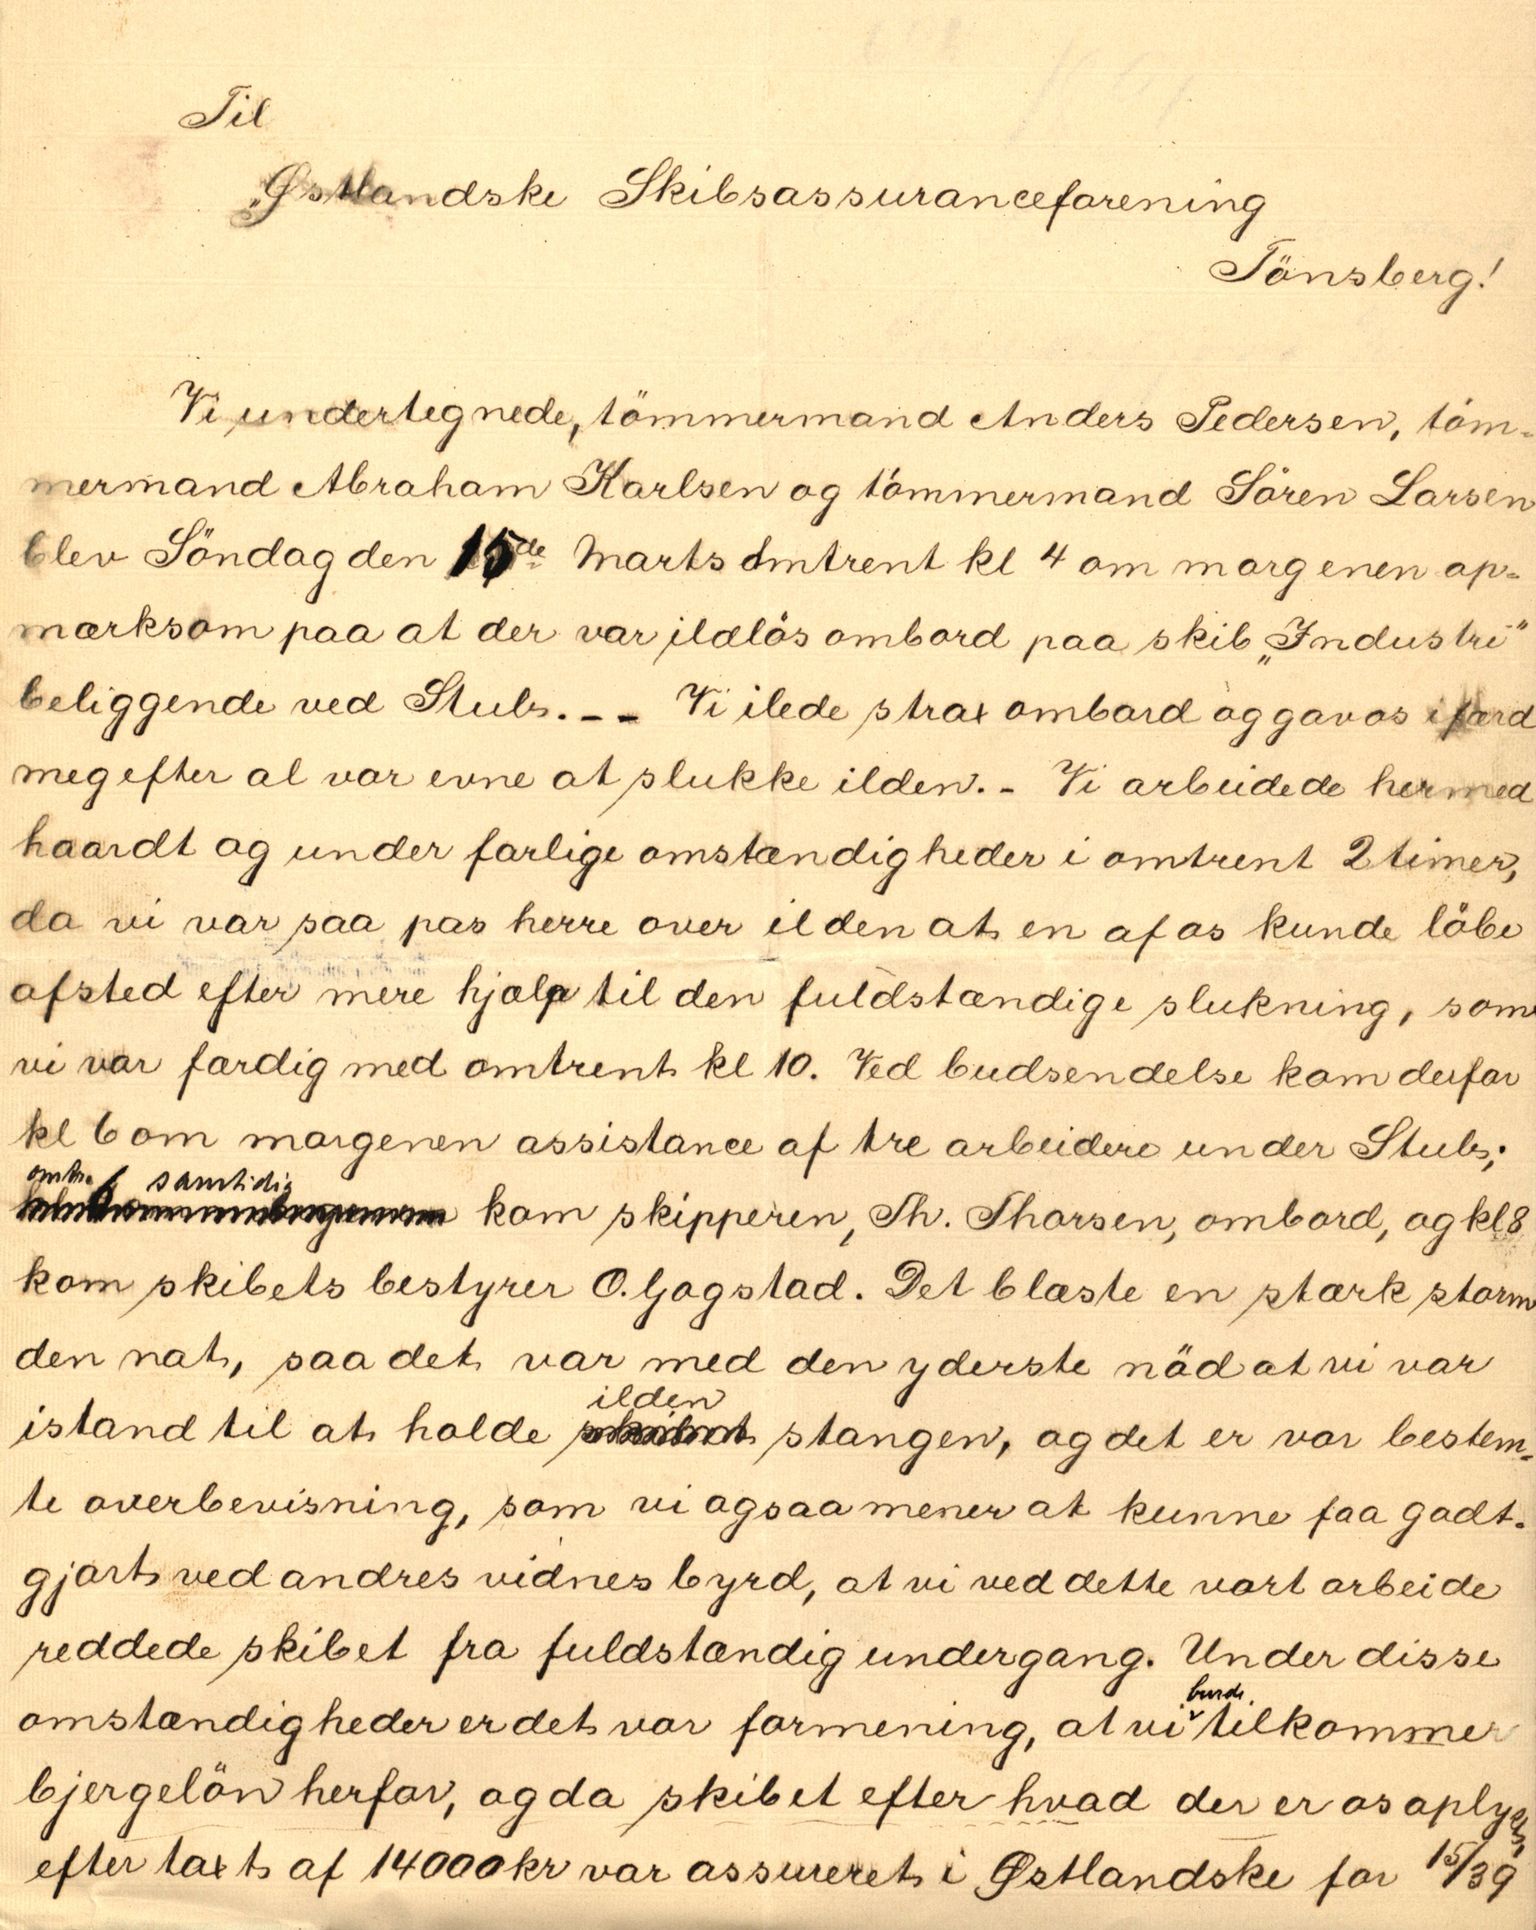 Til
„Østlandske Skibsassuranceforening
Tönsberg!
Vi undertegnede, tömmermand Anders Pedersen, töm-
mermand Abraham Karlsen og tömmermand Sören Larsen
blev Söndag den 15de Marts omtrent kl 4 om morgenen op-
mærksom paa at der var ildlös ombord paa skib „Industri"
beliggende ved Stubs. - - Vi ilede strax ombord og gav os ifærd
meg efter al vor evne at slukke ilden. - Vi arbeidede hermed
haardt og under farlige omstændigheder i omtrent 2 timer,
da vi var saa pas herre over ilden at en af os kunde löbe
afsted efter mere hjælp til den fuldstændige slukning, som
vi var færdig med omtrent kl 10. Ved budsendelse kom derfor
kl 6 om morgenen assistance af tre arbeidere under Stubs;
omtr. samtidig
kom skipperen, Th. Thorsen, ombord, og kl 8
kom skibets bestyrer O. Gogstad. Det blæste en stærk storm
den nat, saa det var med den yderste nöd at vi var
ilden
istand til at holde stangen, og det er vor bestem-
te overbevisning, som vi ogsaa mener at kunne faa godt-
gjort ved andres vidnesbyrd, at vi ved dette vort arbeide
reddede skibet fra fuldstændig undergang. Under disse
burde
omstændigheder er det vor formening, at vi tilkommer
bjergelön herfor, og da skibet efter hvad der er os oplyst
efter taxt af 14000 kr var assureret i Østlandske for 15/39